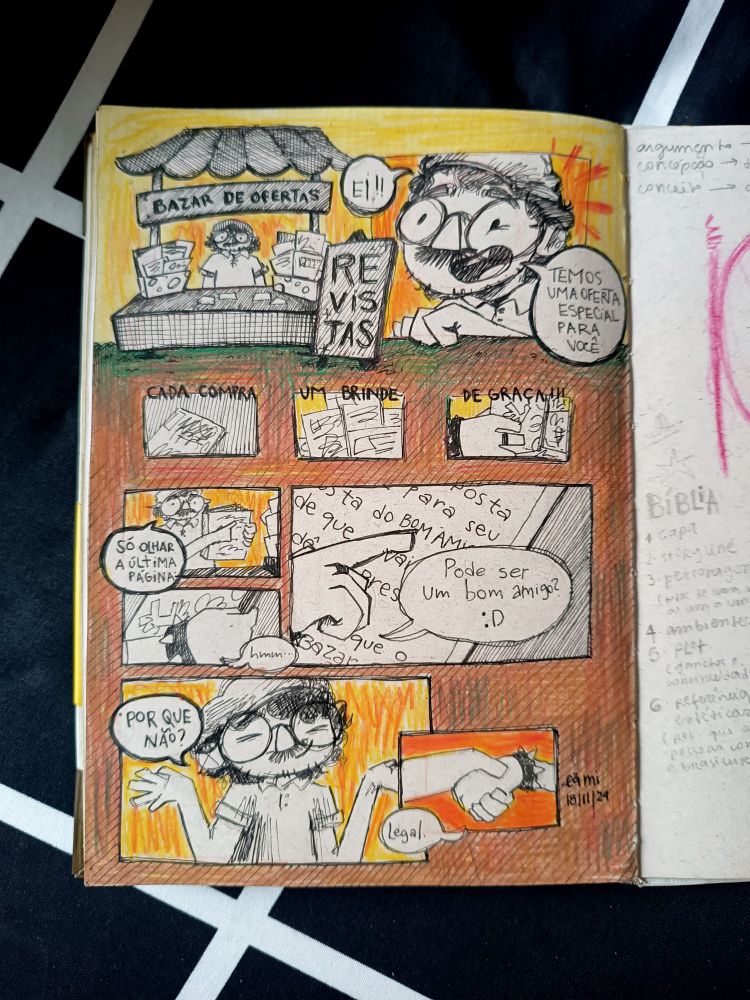 BAZAR DE OFERTAS
EI!!
RE
VIS
TAS
TEMOS
UMA OFERTA
ESPECIAL
PARA
VOCÊ
CADA COMPRA
UM BRINDE
DE GRAÇA!!!
SÓ OLHAR
A ÚLTIMA
PÁGINA
posta
osta para seu
de que do BOM AMI
da
van
pres
que o
Bazar
Pode ser
um bom amigo?
:D
hmm...
POR QUE
NÃO?
Legal.
18/11/24
argumento →
concepção →
conceito →
BÍBLIA
1 capa
2 storyline
3. personagens
4. ambientes
5 plot
6 referências
estéticas